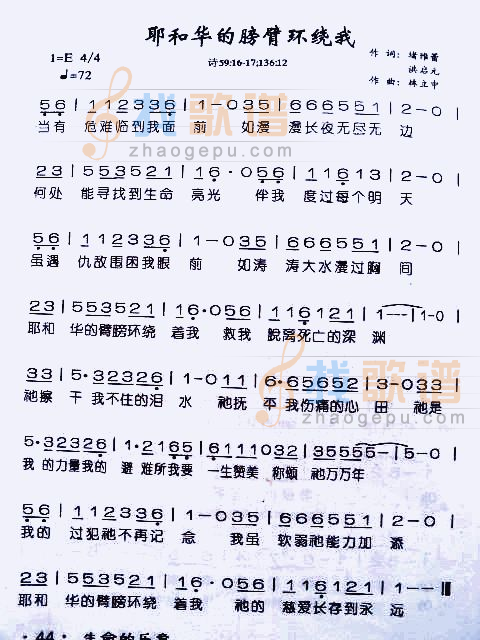 耶和华的膀臂环绕我
诗59:16-17;136:12
1=E 4/4
♩=72
作 词: 堵维蕾
洪启元
作 曲: 林立中
5 6 | 1 1 2 3 3 6 | 1 - 0 3 5 | 6 6 6 6 5 5 1 | 2 - 0 |
当有 危难临到我面 前 如漫 漫长夜无尽无 边
2 3 | 5 5 3 5 2 1 | 1 6 · 0 5 6 | 1 1 6 1 3 | 2 - 0 |
何处 能寻找到生命 亮光 伴我 度过每个明 天
5 6 | 1 1 2 3 3 6 | 1 - 0 3 5 | 6 6 6 6 5 5 1 | 2 - 0 |
虽遇 仇敌围困我眼 前 如涛 涛大水漫过胸 间
2 3 | 5 5 3 5 2 1 | 1 6 · 0 5 6 | 1 1 6 1 2 1 | 1 - - | 1 - 0 |
耶和 华的臂膀环绕 着我 救我 脱离死亡的深 渊
3 3 | 5 · 3 2 3 2 6 | 1 - 0 1 1 | 6 · 6 5 6 5 2 | 3 - 0 3 3 |
祂擦 干我不住的泪 水 祂抚 平我伤痛的心 田 祂是
5 · 3 2 3 2 6 | 1 · 2 1 6 5 | 6 1 1 1 0 3 2 | 3 5 5 5 - | 5 - 0 |
我 的力量我的 避 难所我要 一生赞美 称颂 祂万万年
5 6 | 1 1 2 3 3 6 | 1 - 0 3 5 | 6 6 6 6 5 5 1 | 2 - 0 |
我的 过犯祂不再记 念 我虽 软弱祂能力加 添
2 3 | 5 5 3 5 2 1 | 1 6 · 0 5 6 | 1 1 6 1 2 2 | 1 - - ‖
耶和 华的臂膀环绕 着我 祂的 慈爱长存到永 远
· 44 · 生命的乐章
找歌谱
zhaogepu.com
找歌谱
zhaogepu.com